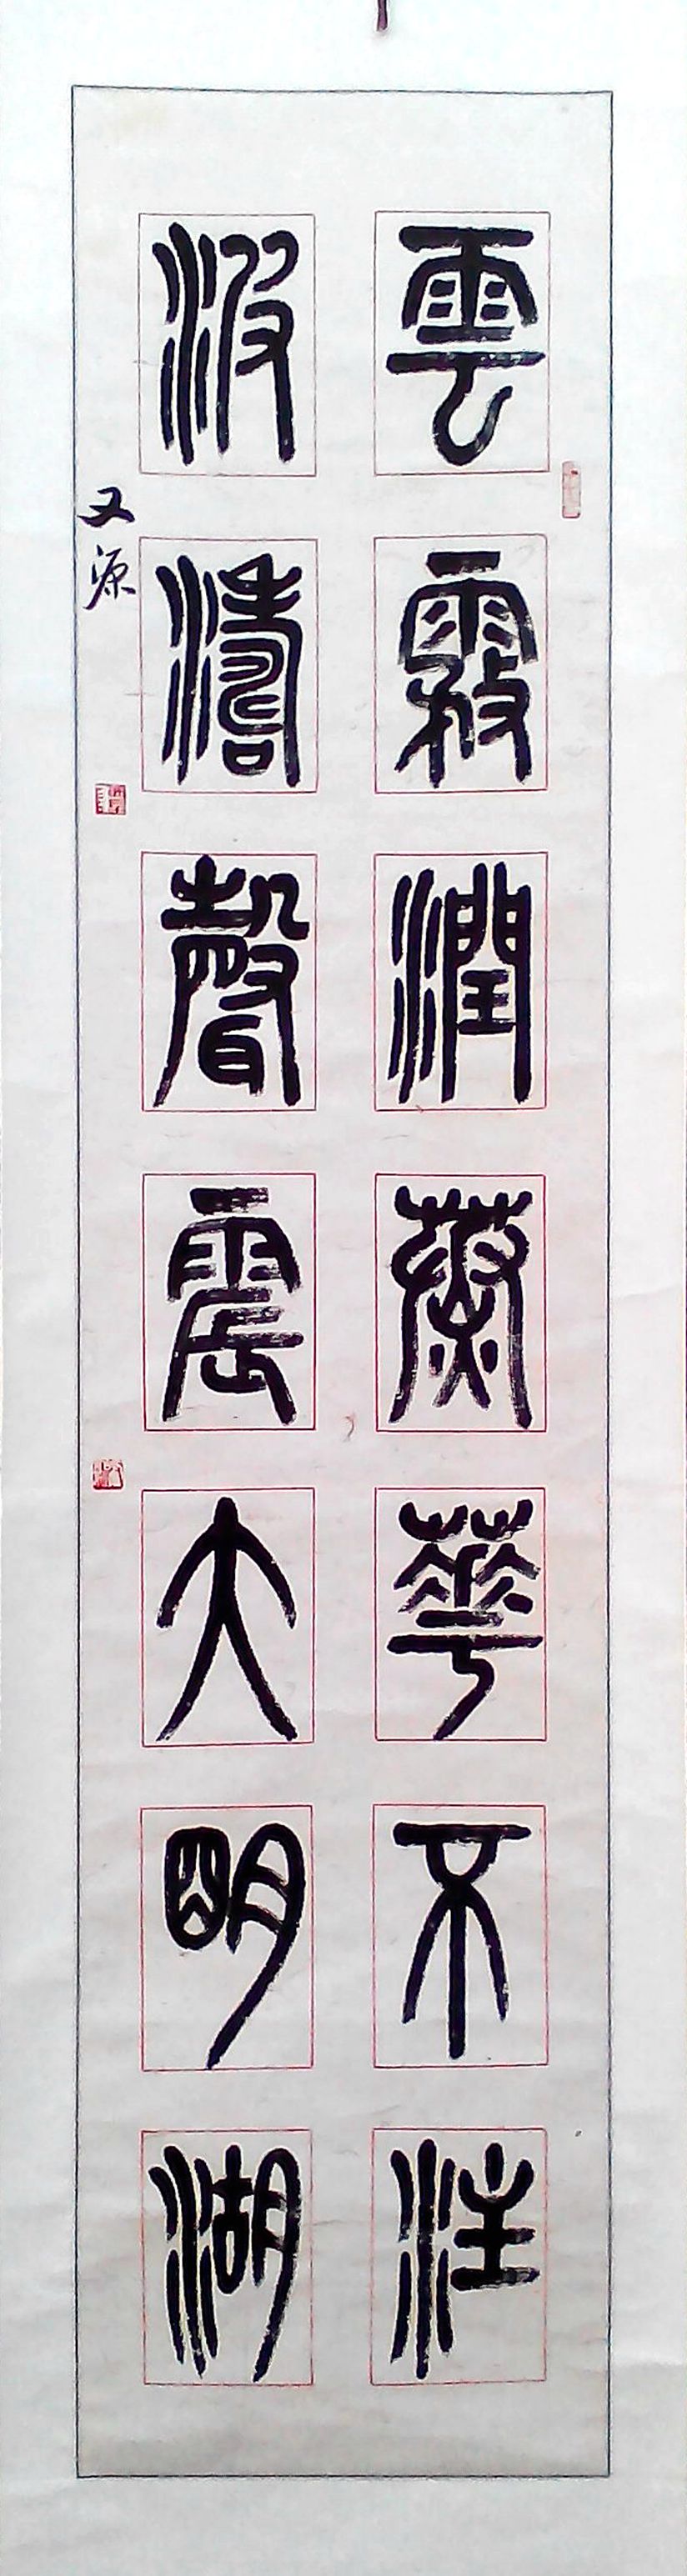 雲霧潤蒸華不注
波濤聲震大明湖
又源